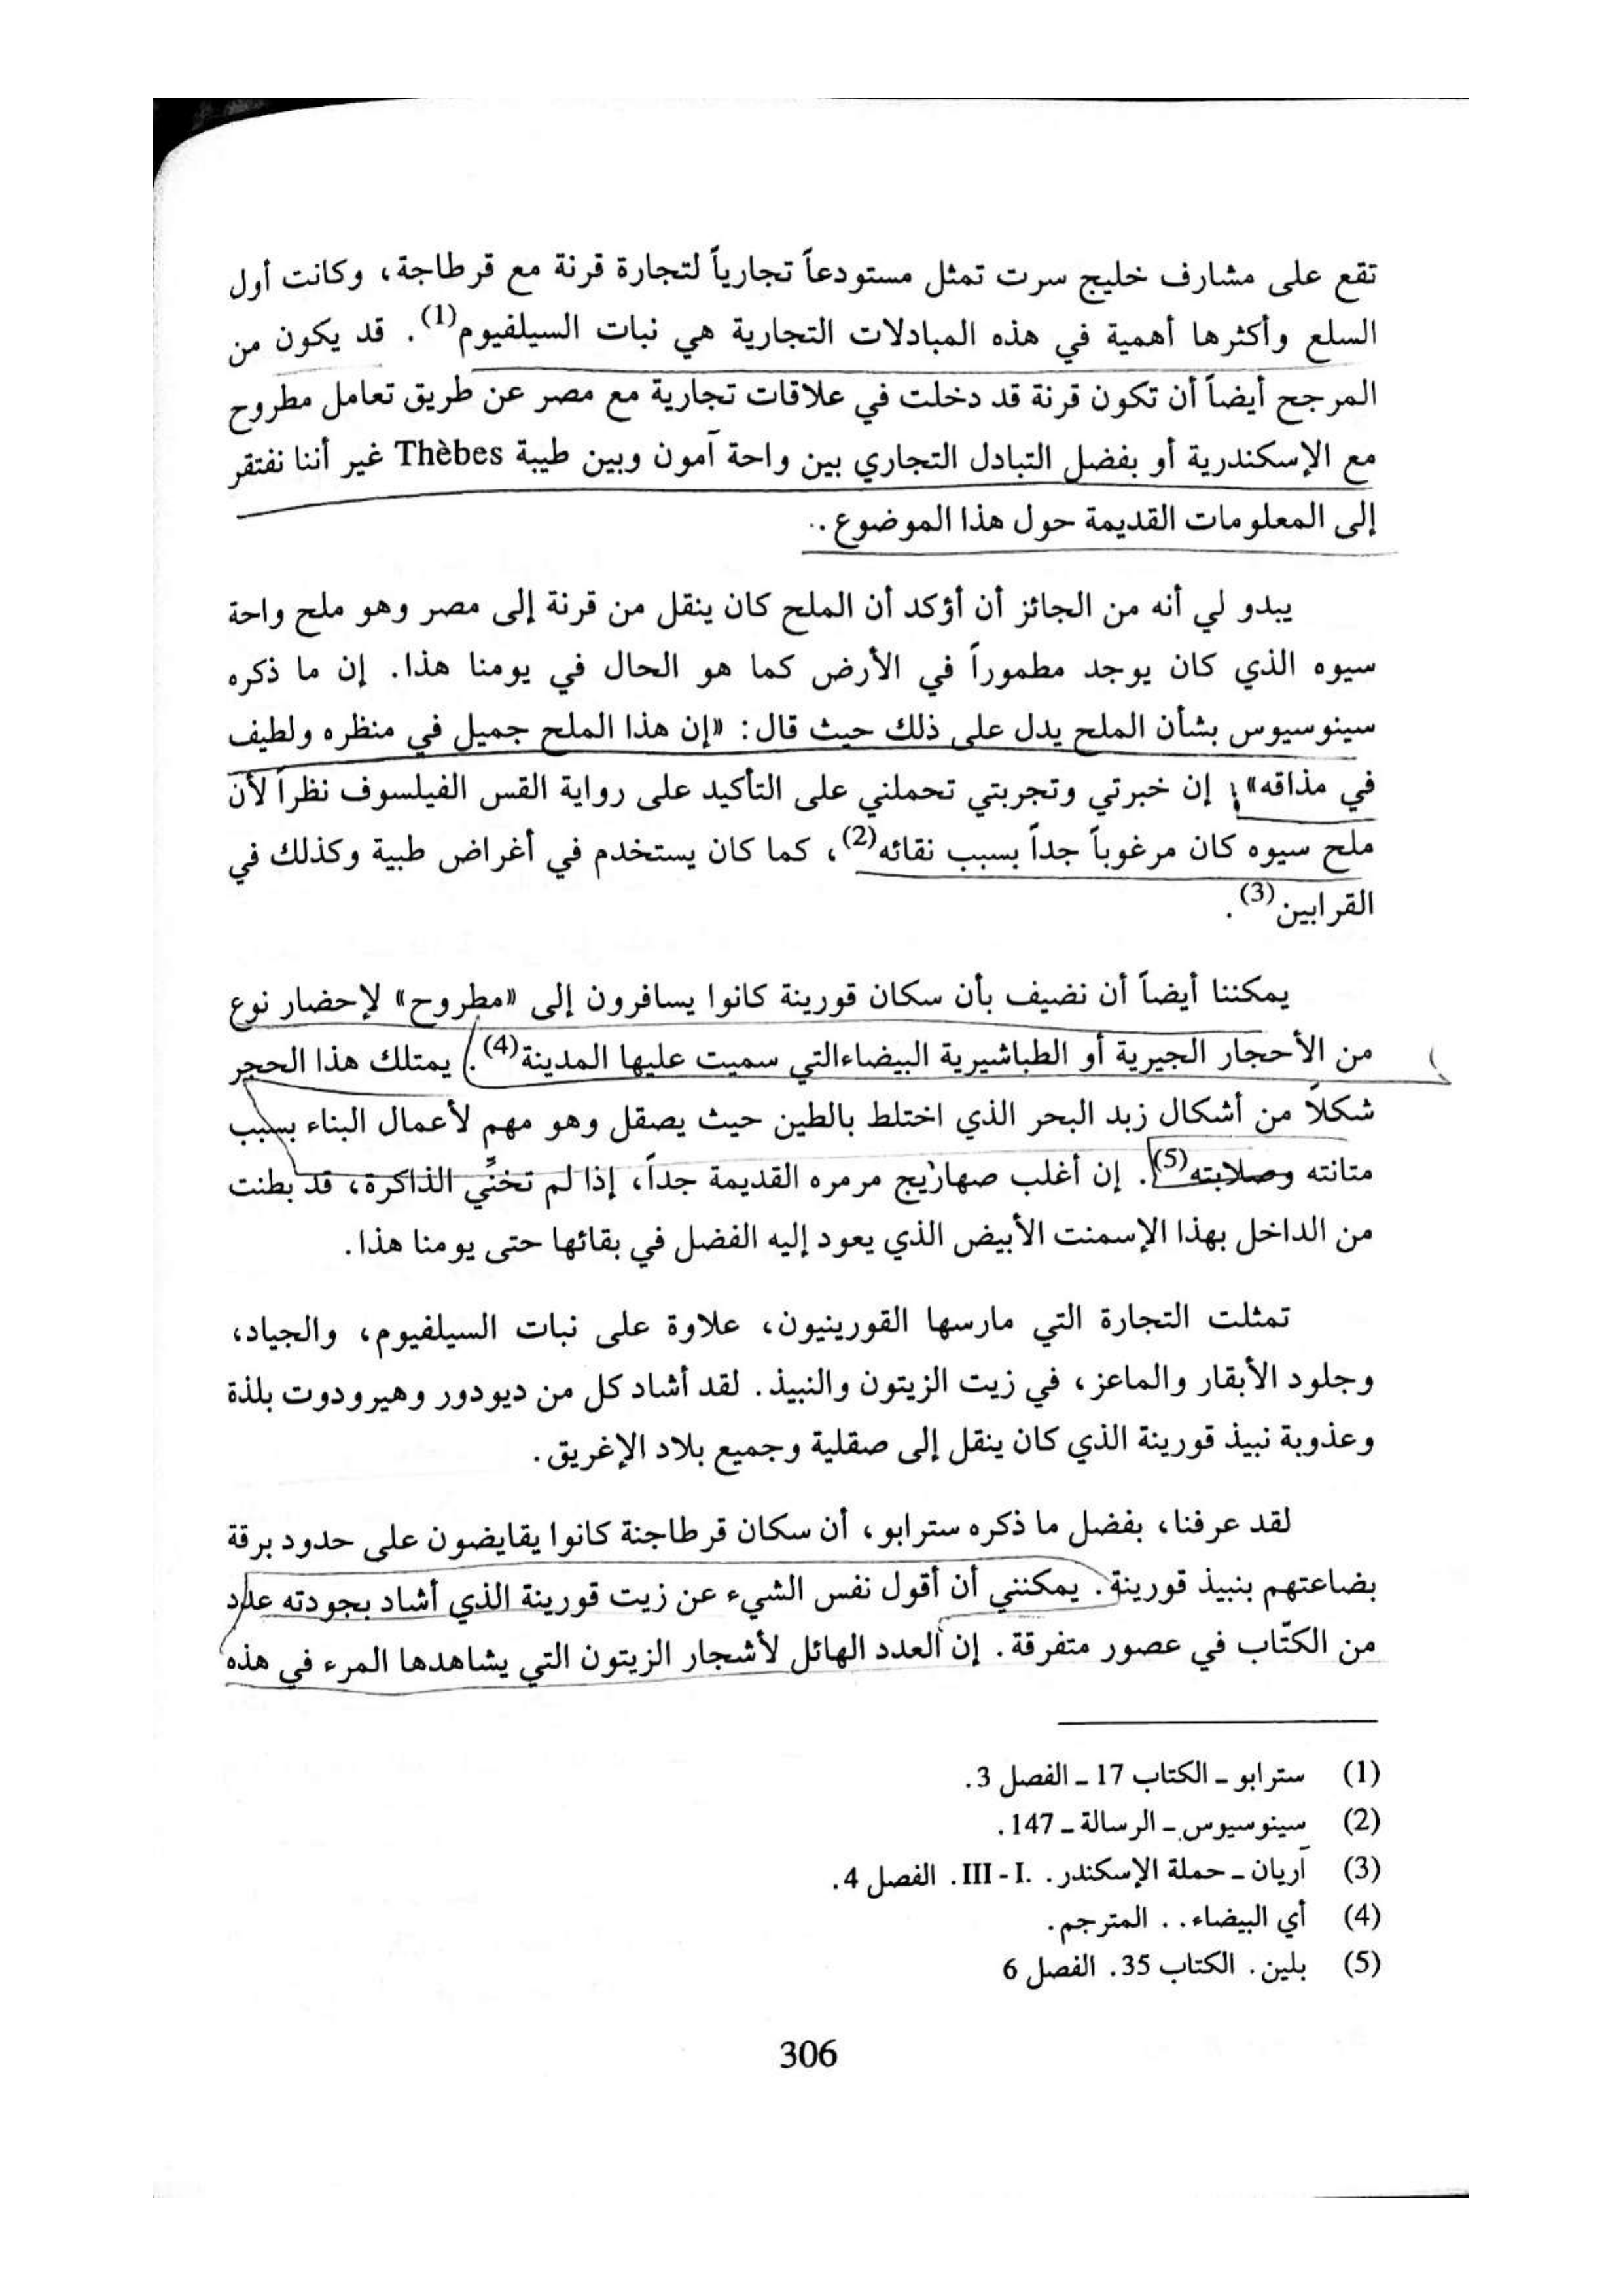 تقع على مشارف خليج سرت تمثل مستودعاً تجارياً لتجارة قرنة مع قرطاجة، وكانت أول
السلع وأكثرها أهمية في هذه المبادلات التجارية هي نبات السيلفيوم(1). قد يكون من
المرجح أيضاً أن تكون قرنة قد دخلت في علاقات تجارية مع مصر عن طريق تعامل مطروح
مع الإسكندرية أو بفضل التبادل التجاري بين واحة آمون وبين طيبة Thèbes غير أننا نفتقر
إلى المعلومات القديمة حول هذا الموضوع..
يبدو لي أنه من الجائز أن أؤكد أن الملح كان ينقل من قرنة إلى مصر وهو ملح واحة
سيوه الذي كان يوجد مطموراً في الأرض كما هو الحال في يومنا هذا. إن ما ذكره
سينوسيوس بشأن الملح يدل على ذلك حيث قال: «إن هذا الملح جميل في منظره ولطيف
في مذاقه»؛ إن خبرتي وتجربتي تحملني على التأكيد على رواية القس الفيلسوف نظراً لأن
ملح سيوه كان مرغوباً جداً بسبب نقائه(2)، كما كان يستخدم في أغراض طبية وكذلك في
القرابين(3).
يمكننا أيضاً أن نضيف بأن سكان قورينة كانوا يسافرون إلى «مطروح» لإحضار نوع
من الأحجار الجيرية أو الطباشيرية البيضاءالتي سميت عليها المدينة(4). يمتلك هذا الحجر
شكلاً من أشكال زبد البحر الذي اختلط بالطين حيث يصقل وهو مهم لأعمال البناء بسبب
متانته وصلابته(5). إن أغلب صهاريج مرمره القديمة جداً، إذا لم تخنِّي الذاكرة، قد بطنت
من الداخل بهذا الإسمنت الأبيض الذي يعود إليه الفضل في بقائها حتى يومنا هذا.
تمثلت التجارة التي مارسها القورينيون، علاوة على نبات السيلفيوم، والجياد،
وجلود الأبقار والماعز، في زيت الزيتون والنبيذ. لقد أشاد كل من ديودور وهيرودوت بلذة
وعذوبة نبيذ قورينة الذي كان ينقل إلى صقلية وجميع بلاد الإغريق.
لقد عرفنا، بفضل ما ذكره سترابو، أن سكان قرطاجنة كانوا يقايضون على حدود برقة
بضاعتهم بنبيذ قورينة. يمكنني أن أقول نفس الشيء عن زيت قورينة الذي أشاد بجودته عدد
من الكتّاب في عصور متفرقة. إن العدد الهائل لأشجار الزيتون التي يشاهدها المرء في هذه
(1) سترابو ـ الكتاب 17 ـ الفصل 3.
(2) سينوسيوس ـ الرسالة ـ 147.
(3) آريان ـ حملة الإسكندر. .III - I. الفصل 4.
(4) أي البيضاء.. المترجم.
(5) بلين. الكتاب 35. الفصل 6
306